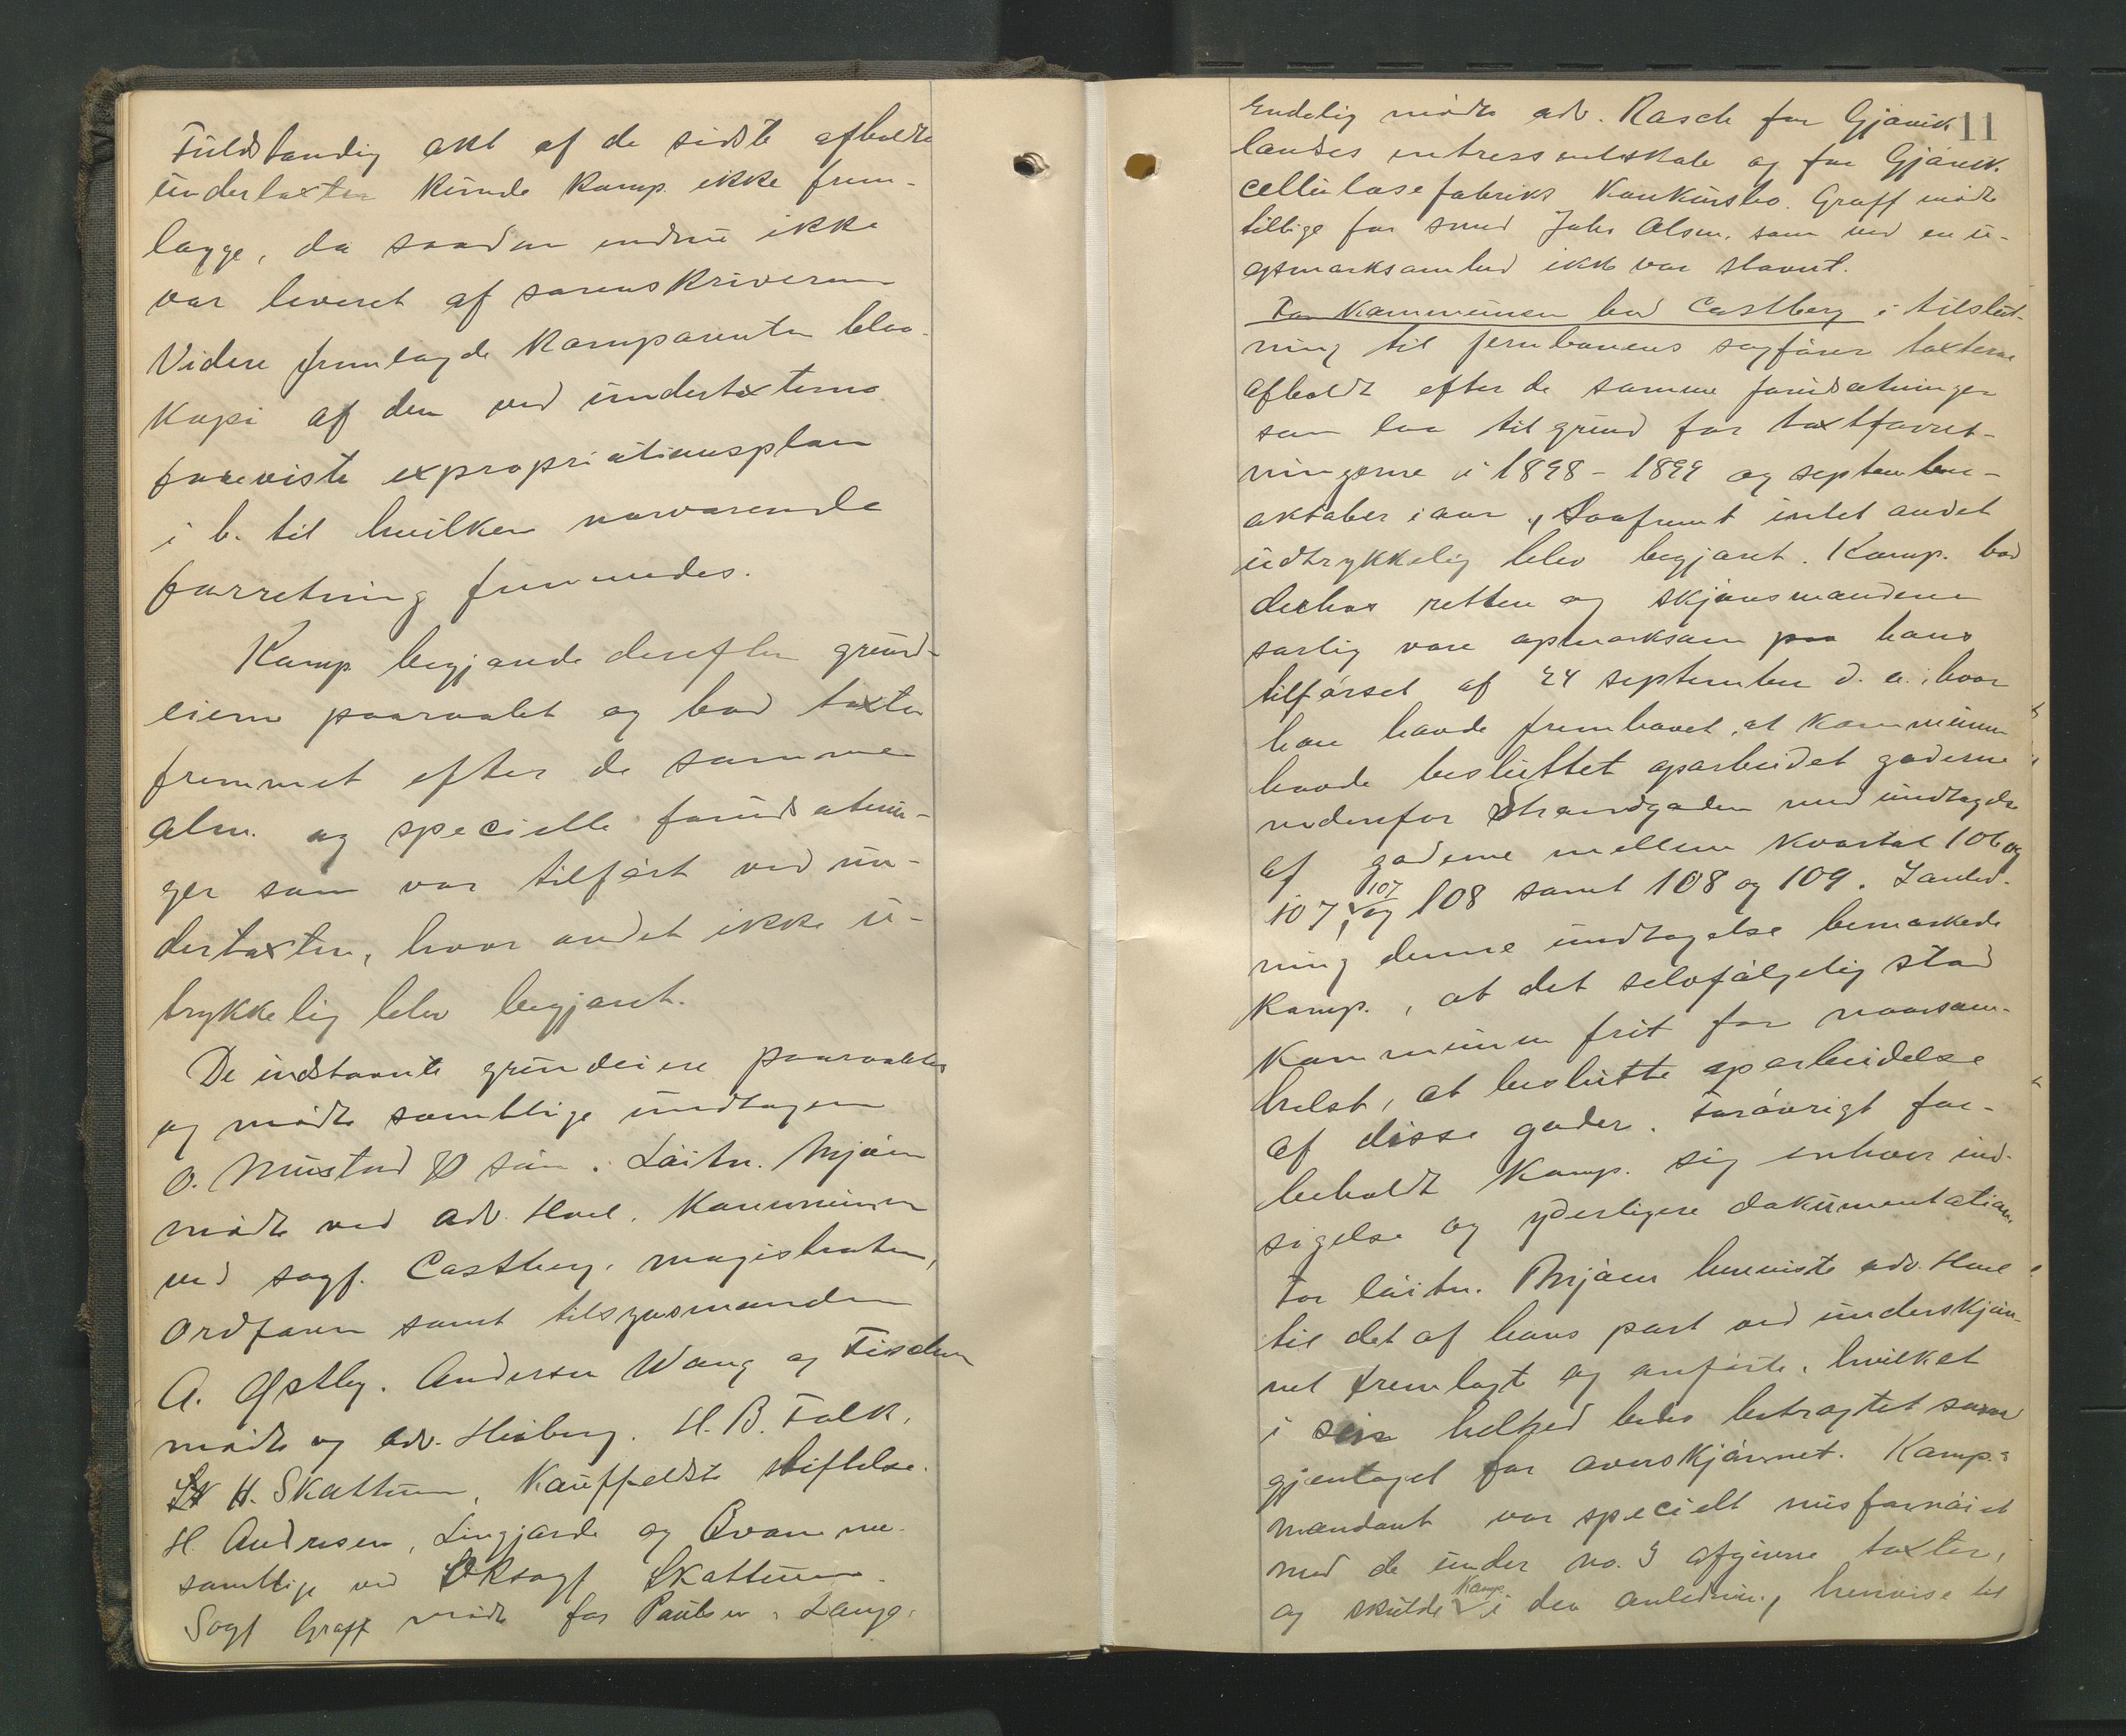 Fuldstændig akt af de sidste afholdte
undertaxter kunde komp. ikke frem-
lægge, da saadan endnu ikke
var leveret af sorenskriveren
Videre fremlagde komparenten blaa-
kopi af den ved undertaxterne
foreviste expropriationsplan
i b. til hvilken nærværende
forretning fremmedes.
Komp begjærede derefter grund-
eierne paaraabt og bad taxten
fremmet efter de samme
alm. og specielle forudsætnin-
ger som var tilført ved un-
dertaxten, hvor andet ikke u-
trykkelig blev begjæret.
De indstævnte grundeiere paaraabtes
og mødte samtlige undtagen
O. Mustad & søn. Løitn. Mjøen
mødte ved adv. Hoel. Kommunen
ved sagf. Castberg, magistraten,
Ordføren samt tilsynsmanden
A. Østby. Andersen Wang og Fischer
mødte og adv. Heiberg. H. B. Falk,
H. Skattum, Kauffeldts stiftelse.
H. Andresen, Lingjærde og Evan
samtlige ved Oksagf Skattum.
Sagf Graff mødte for Paulsen, Lange.
11
Endelig mødte adv. Rasch for Gjøvik
landes intressentskab og for Gjøvik
cellulosefabriks konkursbo. Graff mødte
tillige for smed Johs Olsen, som ved en u-
opmærksomhed ikke var stævnt.
For kommunen bad Castberg i tilslut-
ning til jernbanens sagfører taxterne
afholdt efter de samme forudsætninger
som laa til grund for taxtforret-
ningerne i 1898 - 1899 og september-
oktober iaar, saafremt intet andet
udtrykkelig blev begjæret. Komp. bad
derhos retten og skjønsmændene
særlig være opmærksom paa hans
tilførsel af 24 september d. a. hvor
han havde fremhævet, at kommunen
havde besluttet oparbeidet gaderne
nedenfor Strandgaden med undtagelse
af gaderne mellem kvartal 106 og
107, 107 og 108 samt 108 og 109. I anled-
ning denne undtagelse bemærkede
komp., at det selvfølgelig stod
kommunen frit for naarsom-
helst, at beslutte oparbeidelse
af disse gader. Forøvrigt for-
beholdt komp. sig enhver ind-
sigelse og yderligere dokumentation.
For løitn. Mjøen henviste adv. Hoel
til det af hans part ved underskjøn-
net fremlagte og anførte, hvilket
i sin helhed bedes betragtet som
gjentaget for overskjønnet. Komp.s
mandant var specielt misfornøiet
med de under no. 3 afgivne taxter,
og skulde komp. i den anledning henvise til